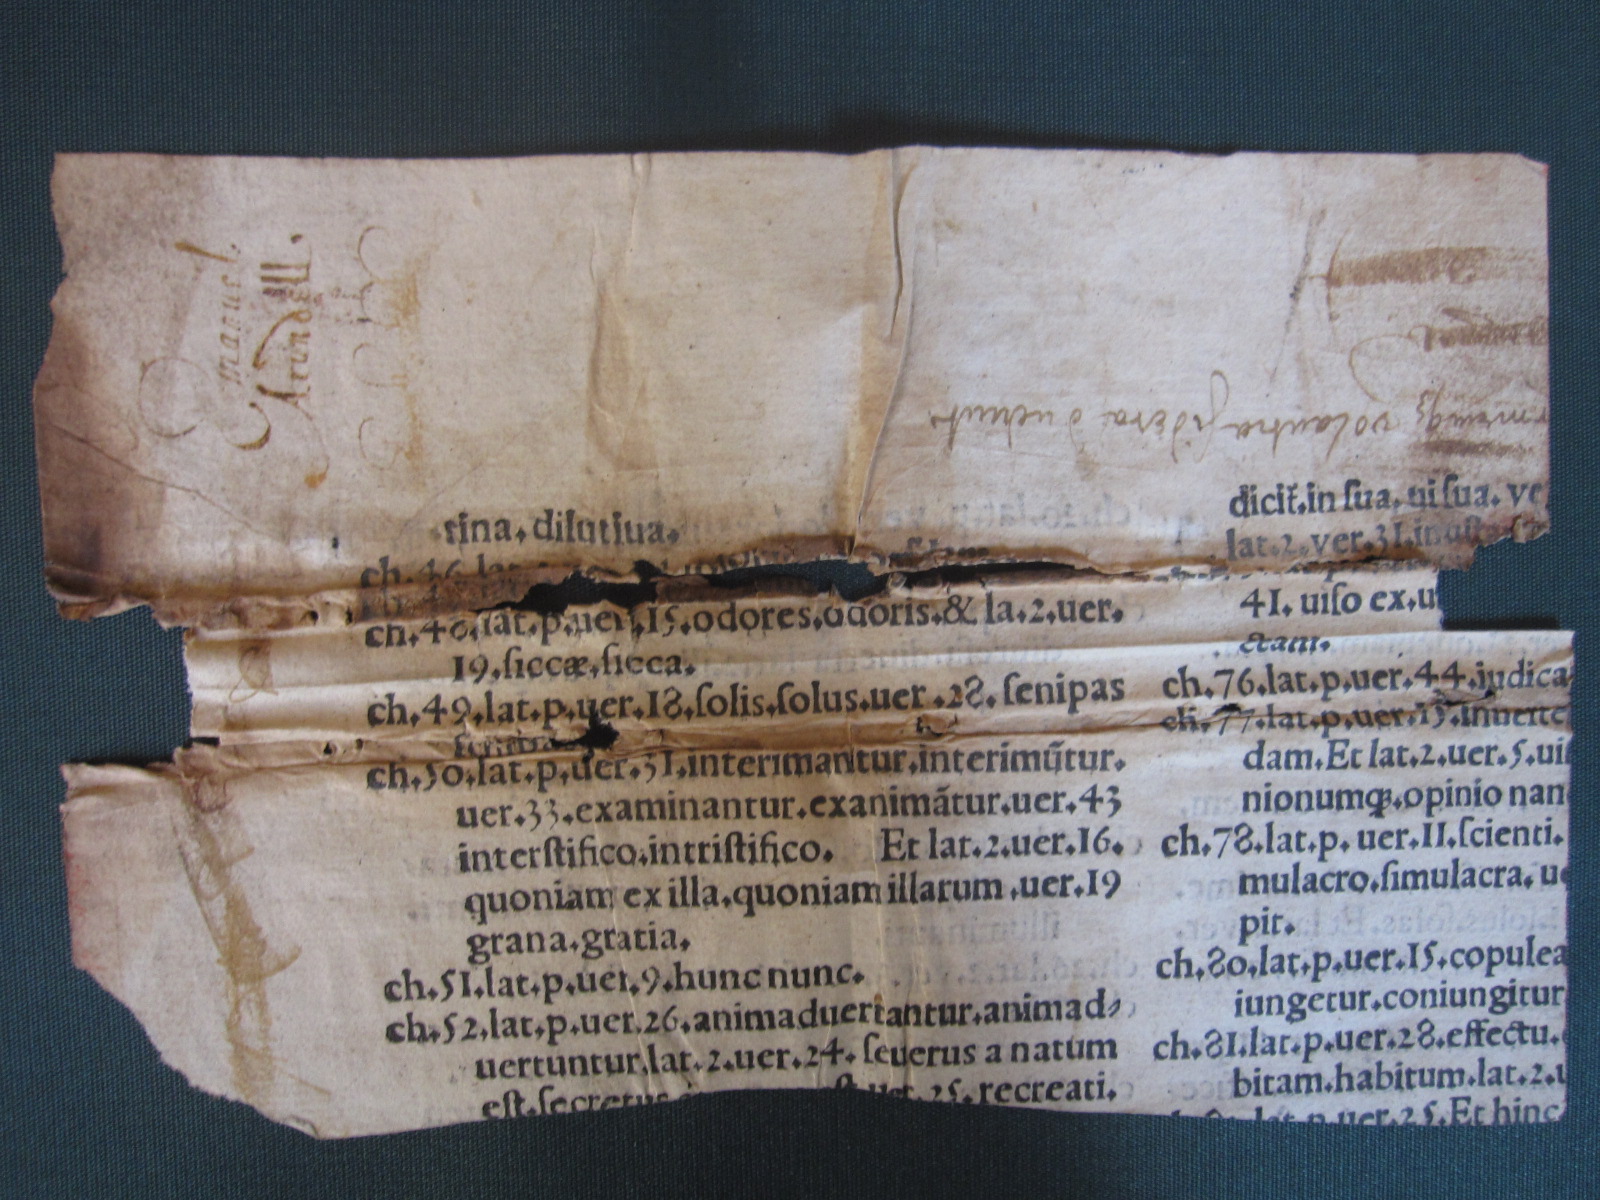 Emanuel.
Arundell.
volantia sidera
rina. dilutiua.
ch. 46. lat.
ch. 48. lat. p. uer. 15. odores. odoris. & la. 2. uer.
19. ſiccæ. ſicca.
ch. 49. lat. p. uer. 18. ſolis. ſolus. uer. 28. ſenipas
ch. 50. lat. p. uer. 31. interimantur. interimũtur.
uer. 33. examinantur. exanimãtur. uer. 43
interſtifico. intriſtifico. Et lat. 2. uer. 16.
quoniam ex illa. quoniam illarum. uer. 19
grana. gratia.
ch. 51. lat. p. uer. 9. hunc nunc.
ch. 52. lat. p. uer. 26. animaduertantur. animad⸗
uertuntur. lat. 2. uer. 24. ſeuerus a natum
eſt. ſecretus uer. 25. recreati.
dicit̃. in ſua. ui ſua. ve
lat. 2. ver. 31. inuſta
41. uiſo ex. u
ctam.
ch. 76. lat. p. uer. 44. iudica
ch. 77. lat. p. uer. 15. inuerte
dam. Et lat. 2. uer. 5. ui
nionumqꝫ. opinio nan
ch. 78. lat. p. uer. 11. ſcienti.
mulacro. ſimulacra. u
pit.
ch. 80. lat. p. uer. 15. copulea
iungetur. coniungitur
ch. 81. lat. p. uer. 28. effectu.
bitam. habitum. lat. 2. u
lat. p. uer. 25. Et hinc